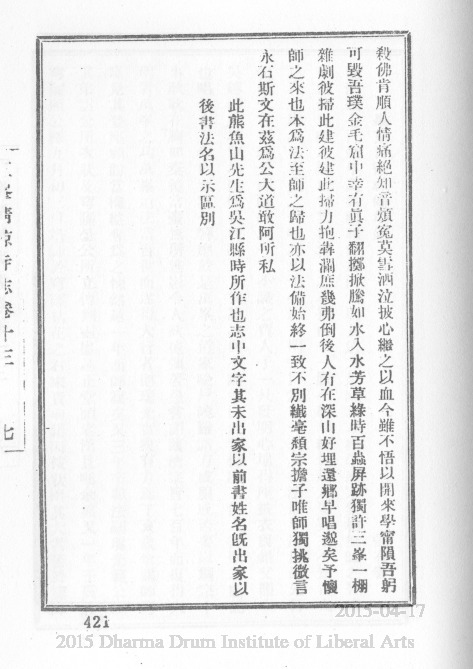 殺佛肯順人情痛絕知音煩冤莫雪洒泣披心繼之以血今雖不悟以開來學甯隕吾躬
可毀吾璞金毛窟中幸有眞子翻擲掀騰如水入水芳草綠時百蟲屏跡獨許三峯一棚
雜劇彼掃此建彼建此掃力抱犇瀾庶幾弗倒後人有在深山好埋還鄉早唱邈矣予懷
師之來也本爲法至師之歸也亦以法備始終一致不別纖毫頹宗擔子唯師獨挑微言
永石斯文在茲爲公大道敢阿所私
此熊魚山先生爲吳江縣時所作也志中文字其未出家以前書姓名旣出家以
後書法名以示區別
峯清涼寺志卷十三
七
421
2015-04-17
2015 Dharma Drum Institute of Liberal Arts